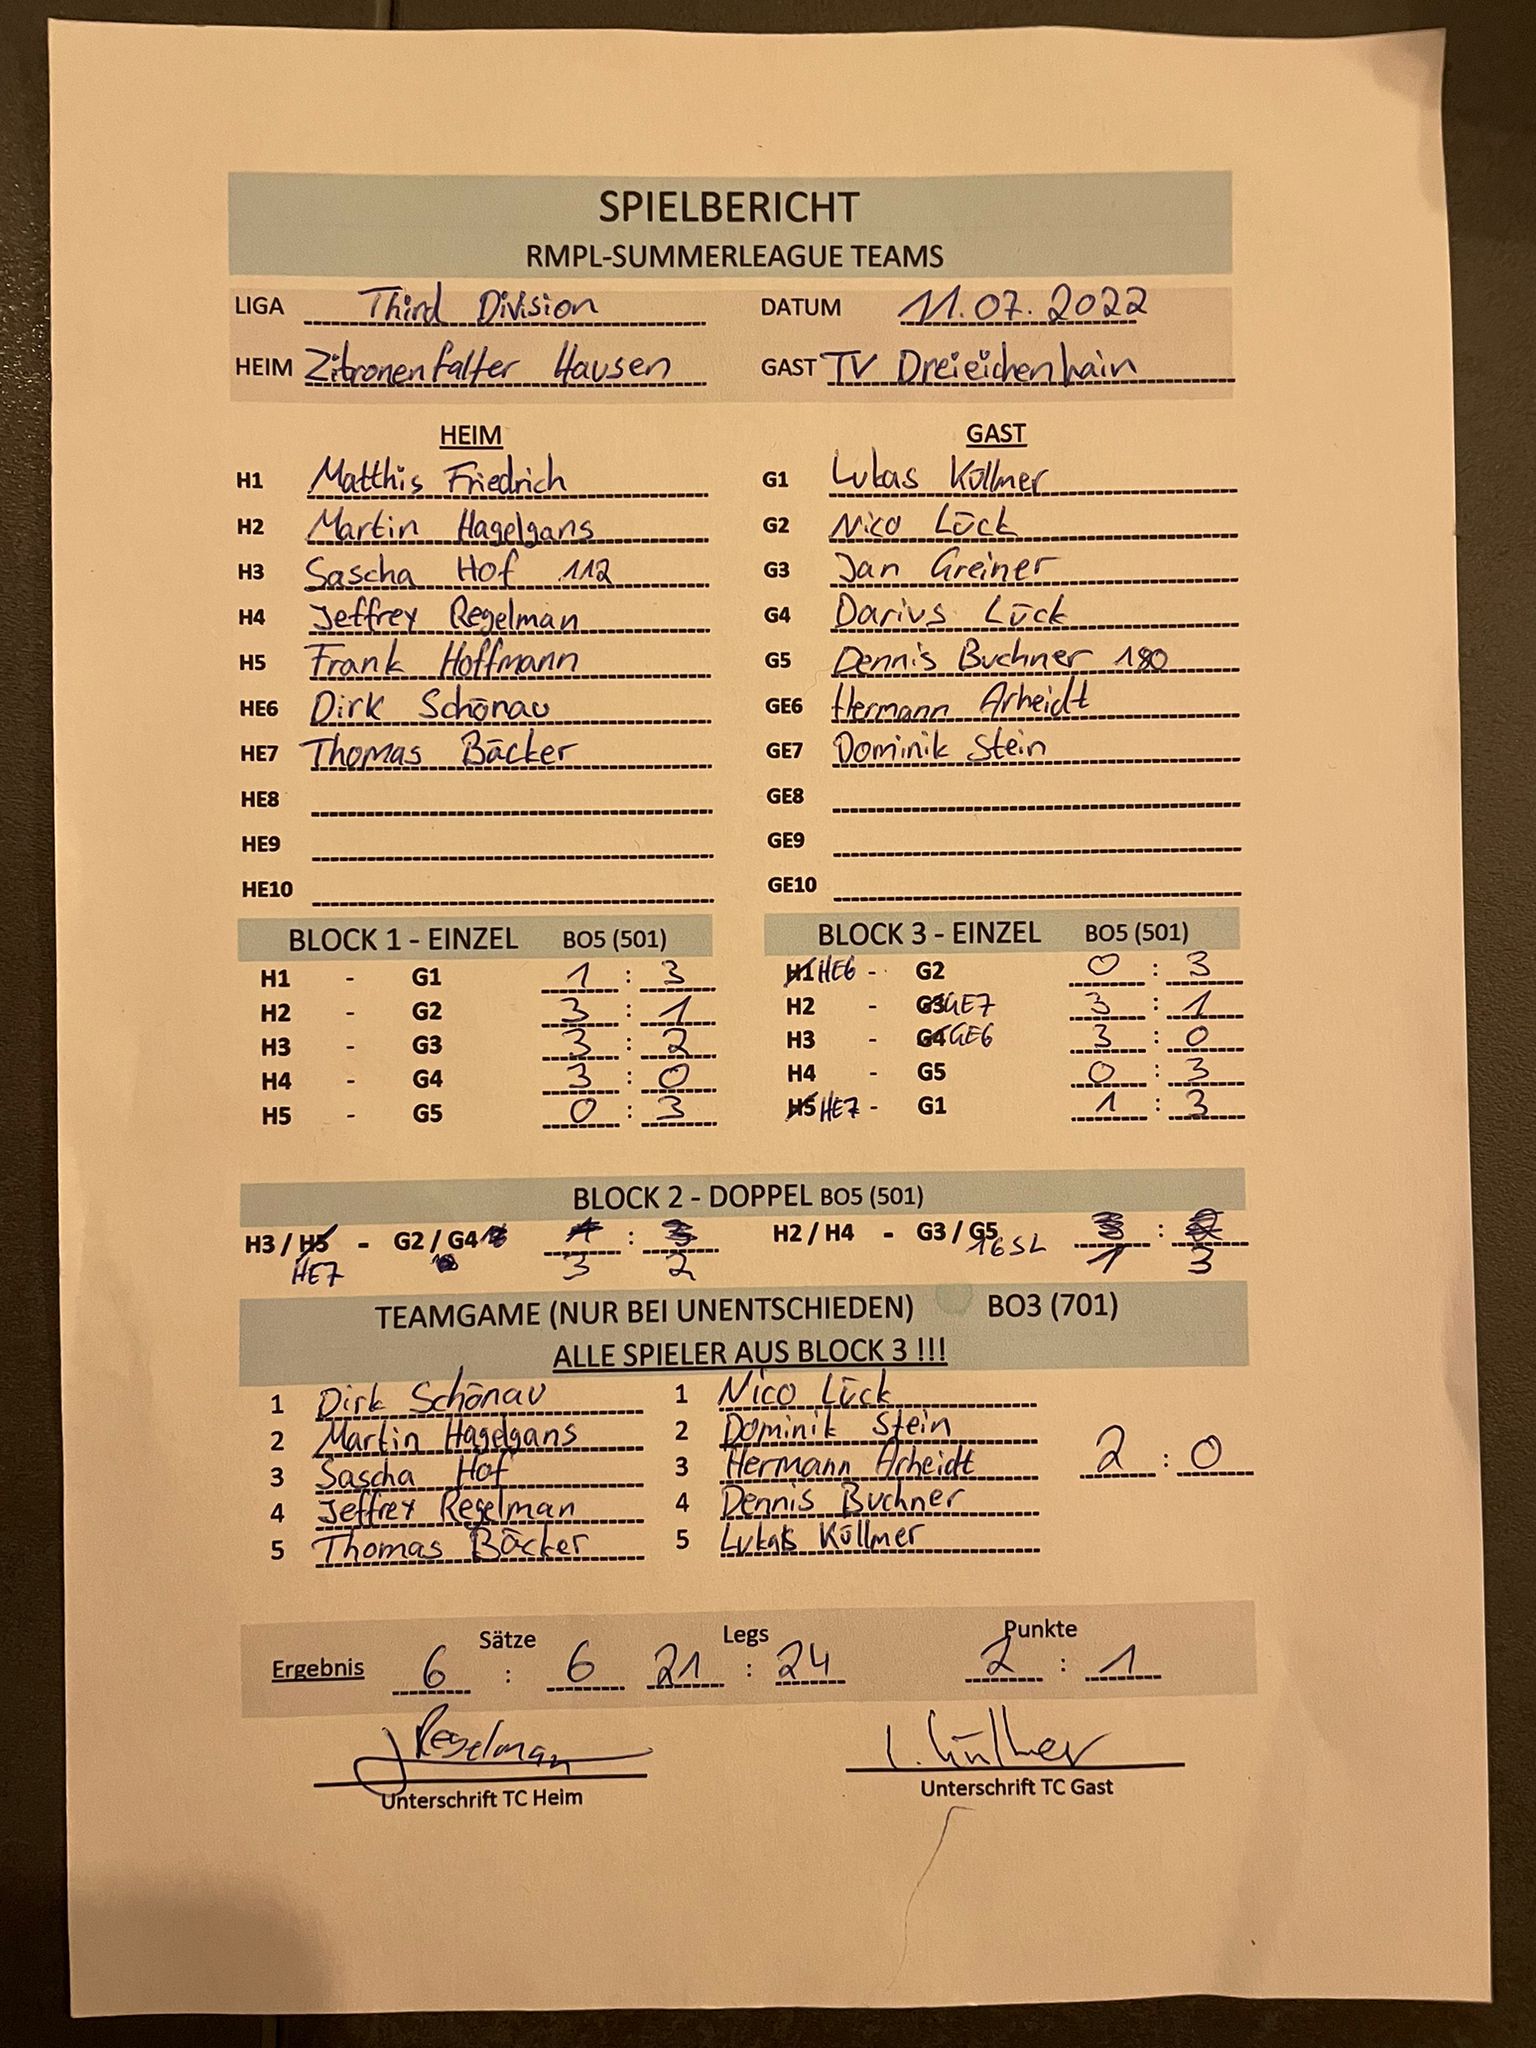 SPIELBERICHT
RMPL-SUMMERLEAGUE TEAMS
LIGA Third Division DATUM 11.07.2022
HEIM Zitronenfalter Hausen GAST TV Dreieichenhain
HEIM GAST
H1 Matthis Friedrich G1 Lukas Küllmer
H2 Martin Hagelgans G2 Nico Lück
H3 Sascha Hof 112 G3 Jan Greiner
H4 Jeffrey Regelman G4 Darius Lück
H5 Frank Hoffmann G5 Dennis Buchner 180
HE6 Dirk Schönau GE6 Hermann Arheidt
HE7 Thomas Bäcker GE7 Dominik Stein
HE8 GE8
HE9 GE9
HE10 GE10
BLOCK 1 - EINZEL BO5 (501) BLOCK 3 - EINZEL BO5 (501)
H1 - G1 1 : 3 H1 HE6 - G2 0 : 3
H2 - G2 3 : 1 H2 - G3 GE7 3 : 1
H3 - G3 3 : 2 H3 - G4 GE6 3 : 0
H4 - G4 3 : 0 H4 - G5 0 : 3
H5 - G5 0 : 3 H5 HE7 - G1 1 : 3
BLOCK 2 - DOPPEL BO5 (501)
H3 / H5 - G2 / G4 : H2 / H4 - G3 / G5 :
HE7 3 2 16SL 1 3
TEAMGAME (NUR BEI UNENTSCHIEDEN) BO3 (701)
ALLE SPIELER AUS BLOCK 3 !!!
1 Dirk Schönau 1 Nico Lück
2 Martin Hagelgans 2 Dominik Stein
3 Sascha Hof 3 Hermann Arheidt 2 : 0
4 Jeffrey Regelman 4 Dennis Buchner
5 Thomas Bäcker 5 Lukas Küllmer
Sätze Legs Punkte
Ergebnis 6 : 6 21 : 24 2 : 1
J Regelman L. Küllmer
Unterschrift TC Heim Unterschrift TC Gast